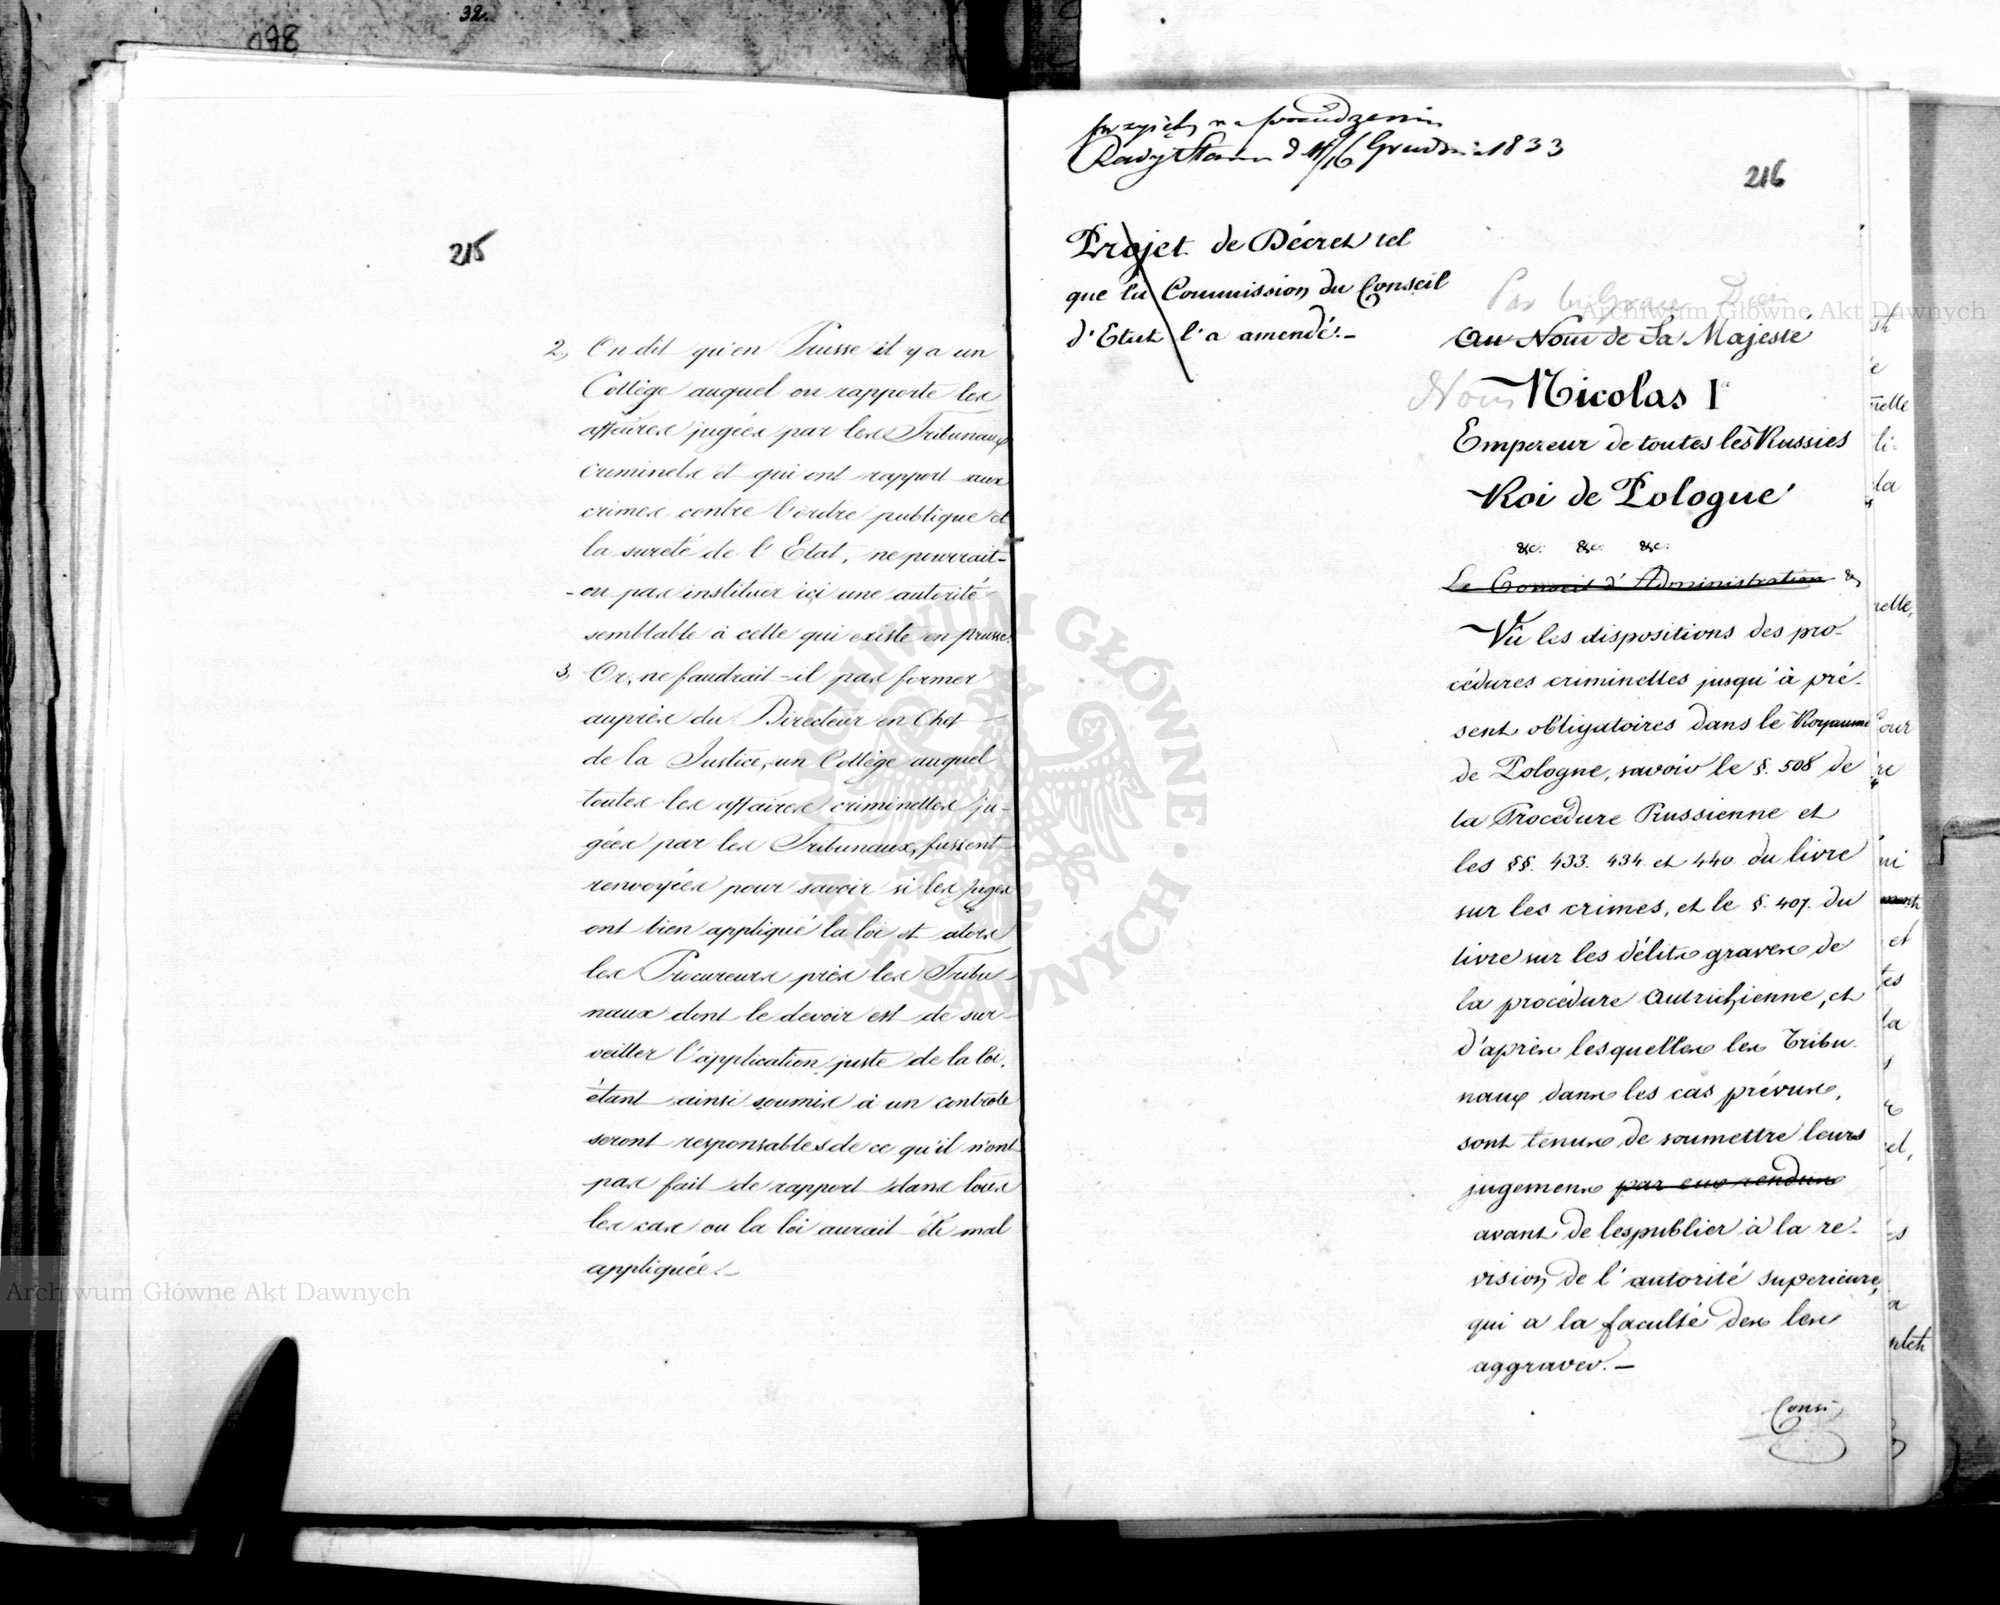 32.
098
215
2, On dit qu'en Prusse il y a un
Collège auquel on rapporte les
affaires jugées par les Tribunaux
criminels et qui ont rapport aux
crimes contre l'ordre publique et
la sureté de l'Etat, ne pourrait-
-on pas instituer ici une autorité
semblable à celle qui existe en prusse.
3, Or, ne faudrait-il pas former
auprès du Directeur en Chef
de la Justice, un Collège auquel
toutes les affaires criminelles ju-
gées par les Tribunaux, fussent
renvoyées pour savoir si les Juges
ont bien appliqué la loi et alors
les Procureurs près les Tribu-
naux dont le devoir est de sur-
veiller l'application juste de la loi,
étant ainsi soumis à un contrôle
seront responsables de ce qu'il n'ont
pas fait de rapport dans tous
les cas ou la loi aurait été mal
appliquée.-
przyięty na posiedzeniu
Rady Stanu d 4/16 Grudnia 1833
216
Projet de Décret tel
que la Commission du Conseil
d'Etat l'a amendé.-
Par la Grace Dieu
Au Nom de Sa Majesté
Nous Nicolas I
Empereur de toutes les Russies
Roi de Pologne
&c: &c: &c:
Le Conseil d'Administration &
Vû les dispositions des pro-
cédures criminelles jusqu'à pré-
sent obligatoires dans le Royaume
de Pologne, savoir le §. 508 de
la Procedure Prussienne et
les §§. 433. 434. et 440. du livre
sur les crimes, et le §. 407. du
livre sur les délits graves de
la procédure Autrichienne, et
d'après lesquelles les Tribu-
naux dans les cas prévus,
sont tenus de soumettre leurs
jugemens par eux rendus
avant de les publier à la re-
vision de l'autorité superieure,
qui a la faculté des les
aggraver.-
Consi-
Archiwum Główne Akt Dawnych
Archiwum Główne Akt Dawnych
ARCHIWUM GŁÓWNE AKT DAWNYCH